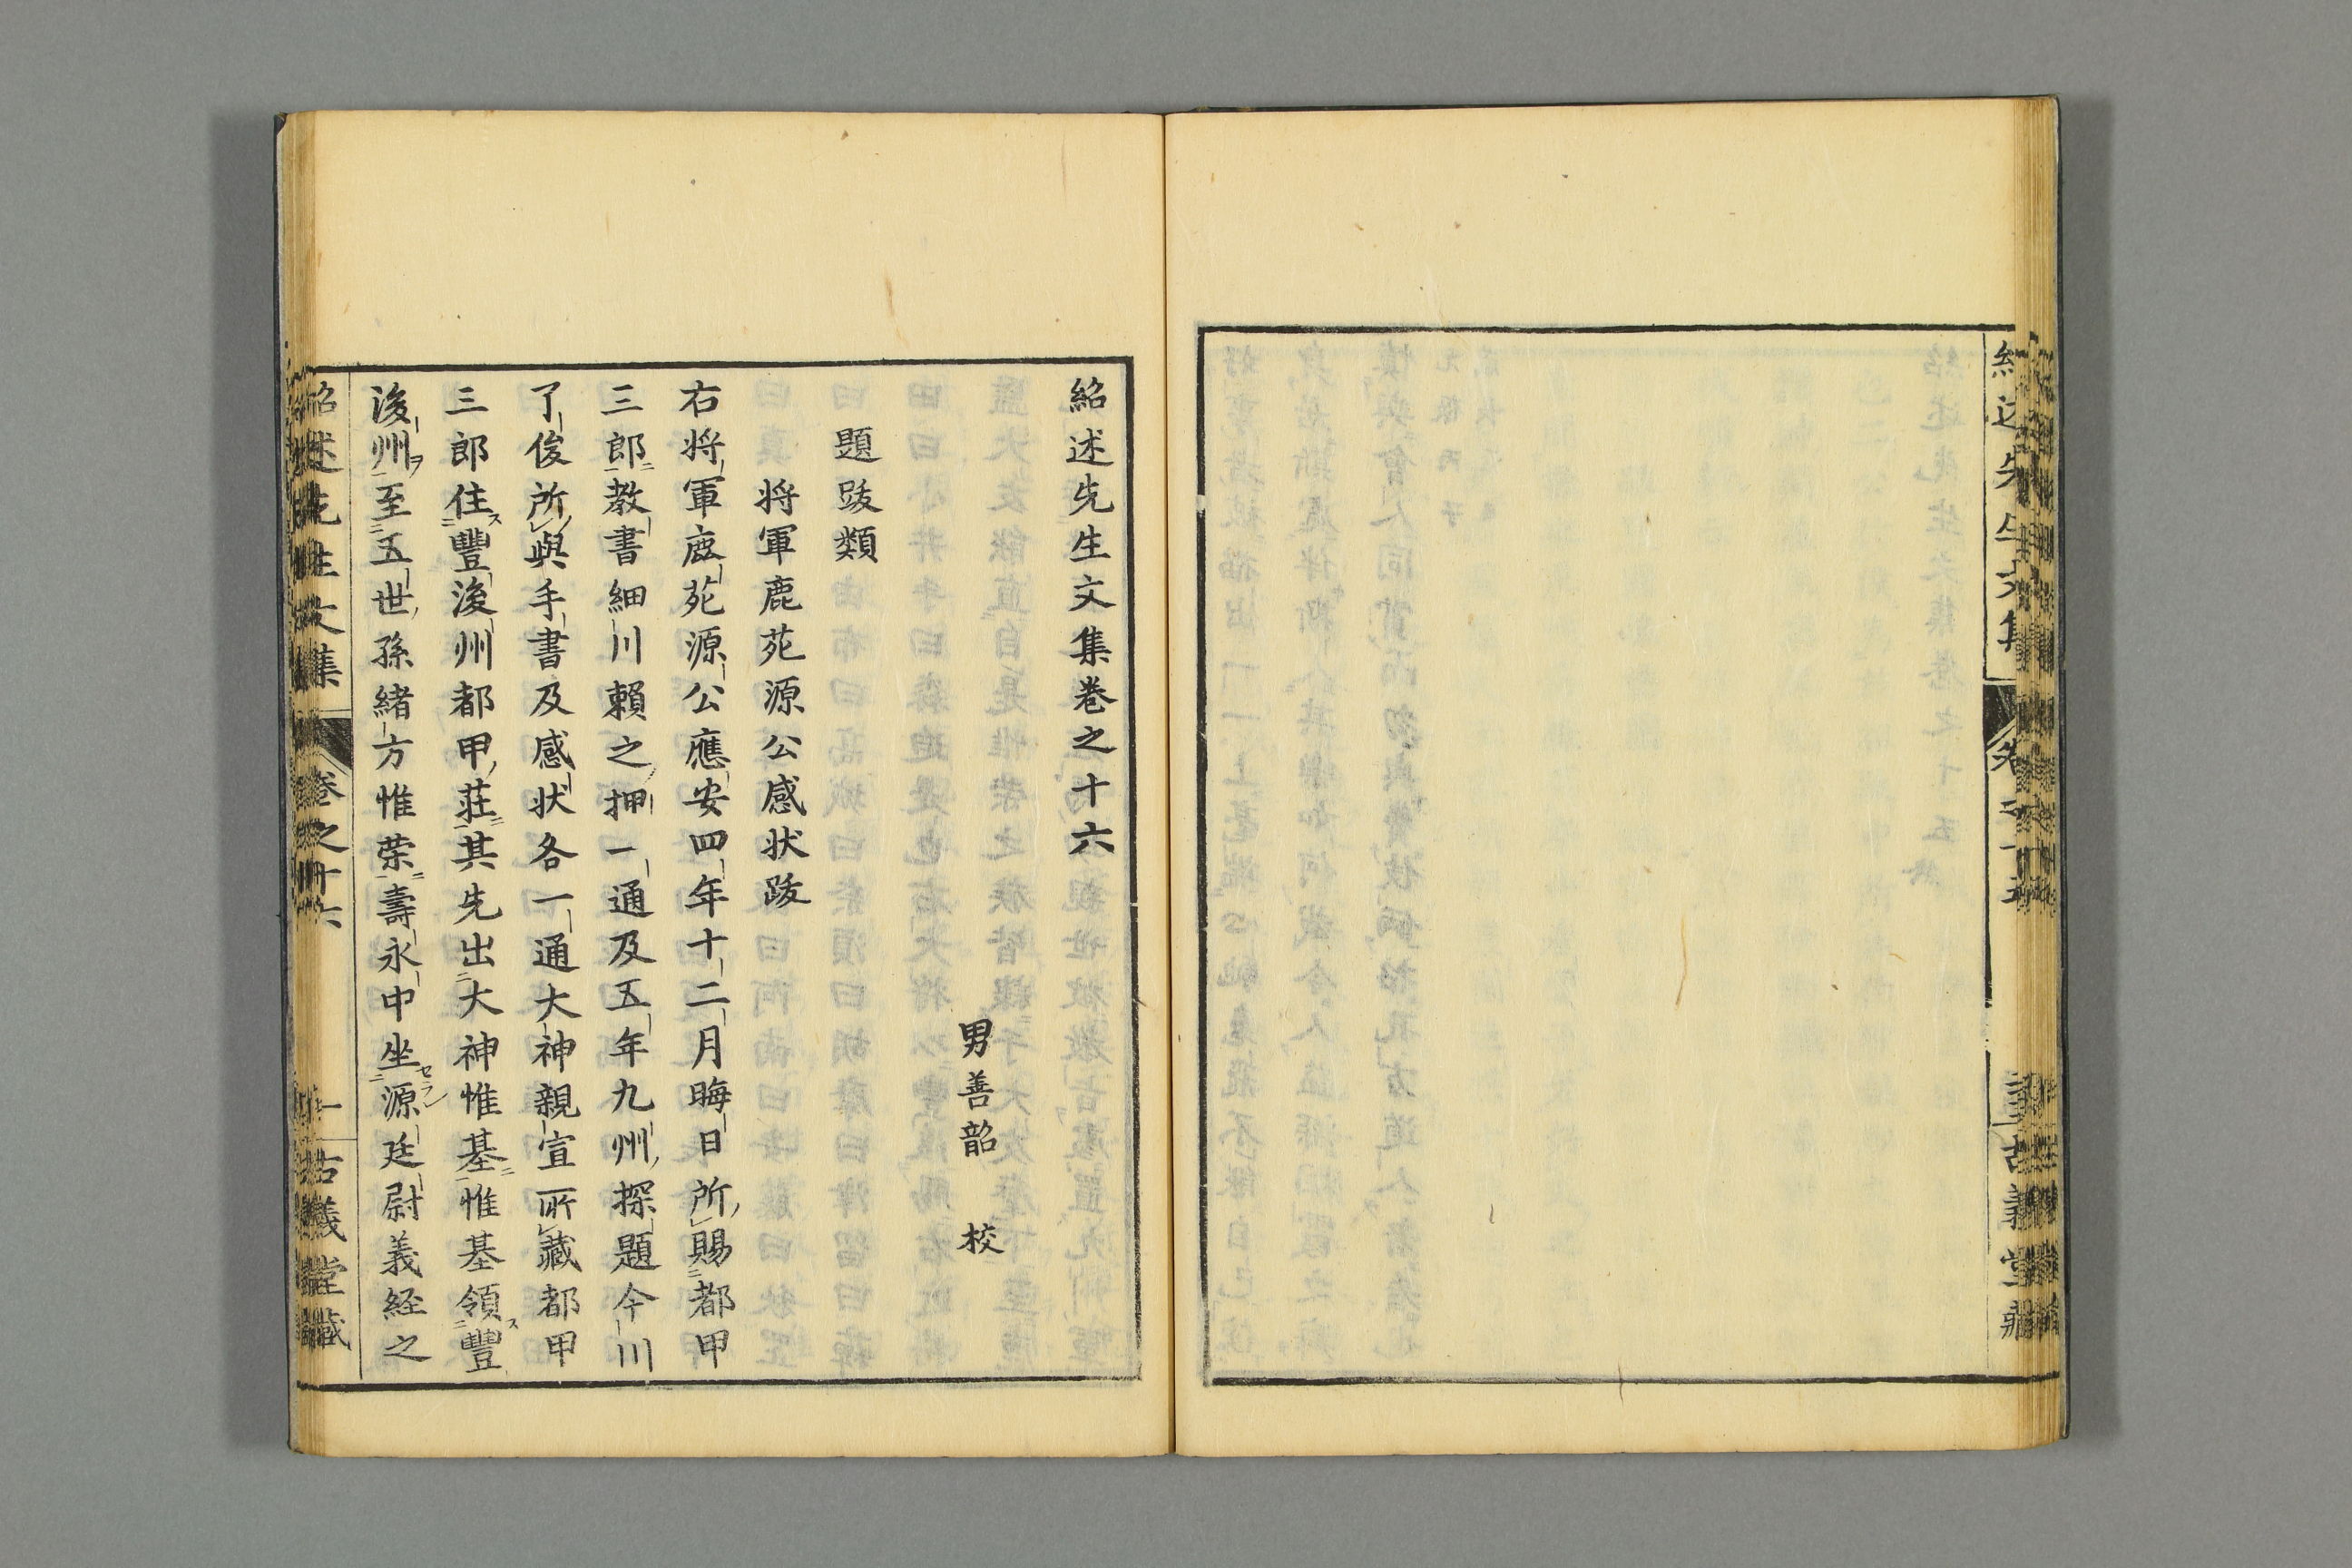 紹述先生文集巻之十六
男善韶　校
題跋類
将軍鹿苑源公感状跋
右将軍鹿苑源公應安四年十二月晦日所賜都甲
三郎教書細川頼之押一通及五年九州探題今川
了俊所與手書及感状各一通大神親宣所藏都甲
三郎住豐後州都甲荘其先出大神惟基惟基領豐
後州至五世孫緒方惟栄壽永中坐源廷尉義経之
紹述先生文集　巻之十六　一　古義堂藏